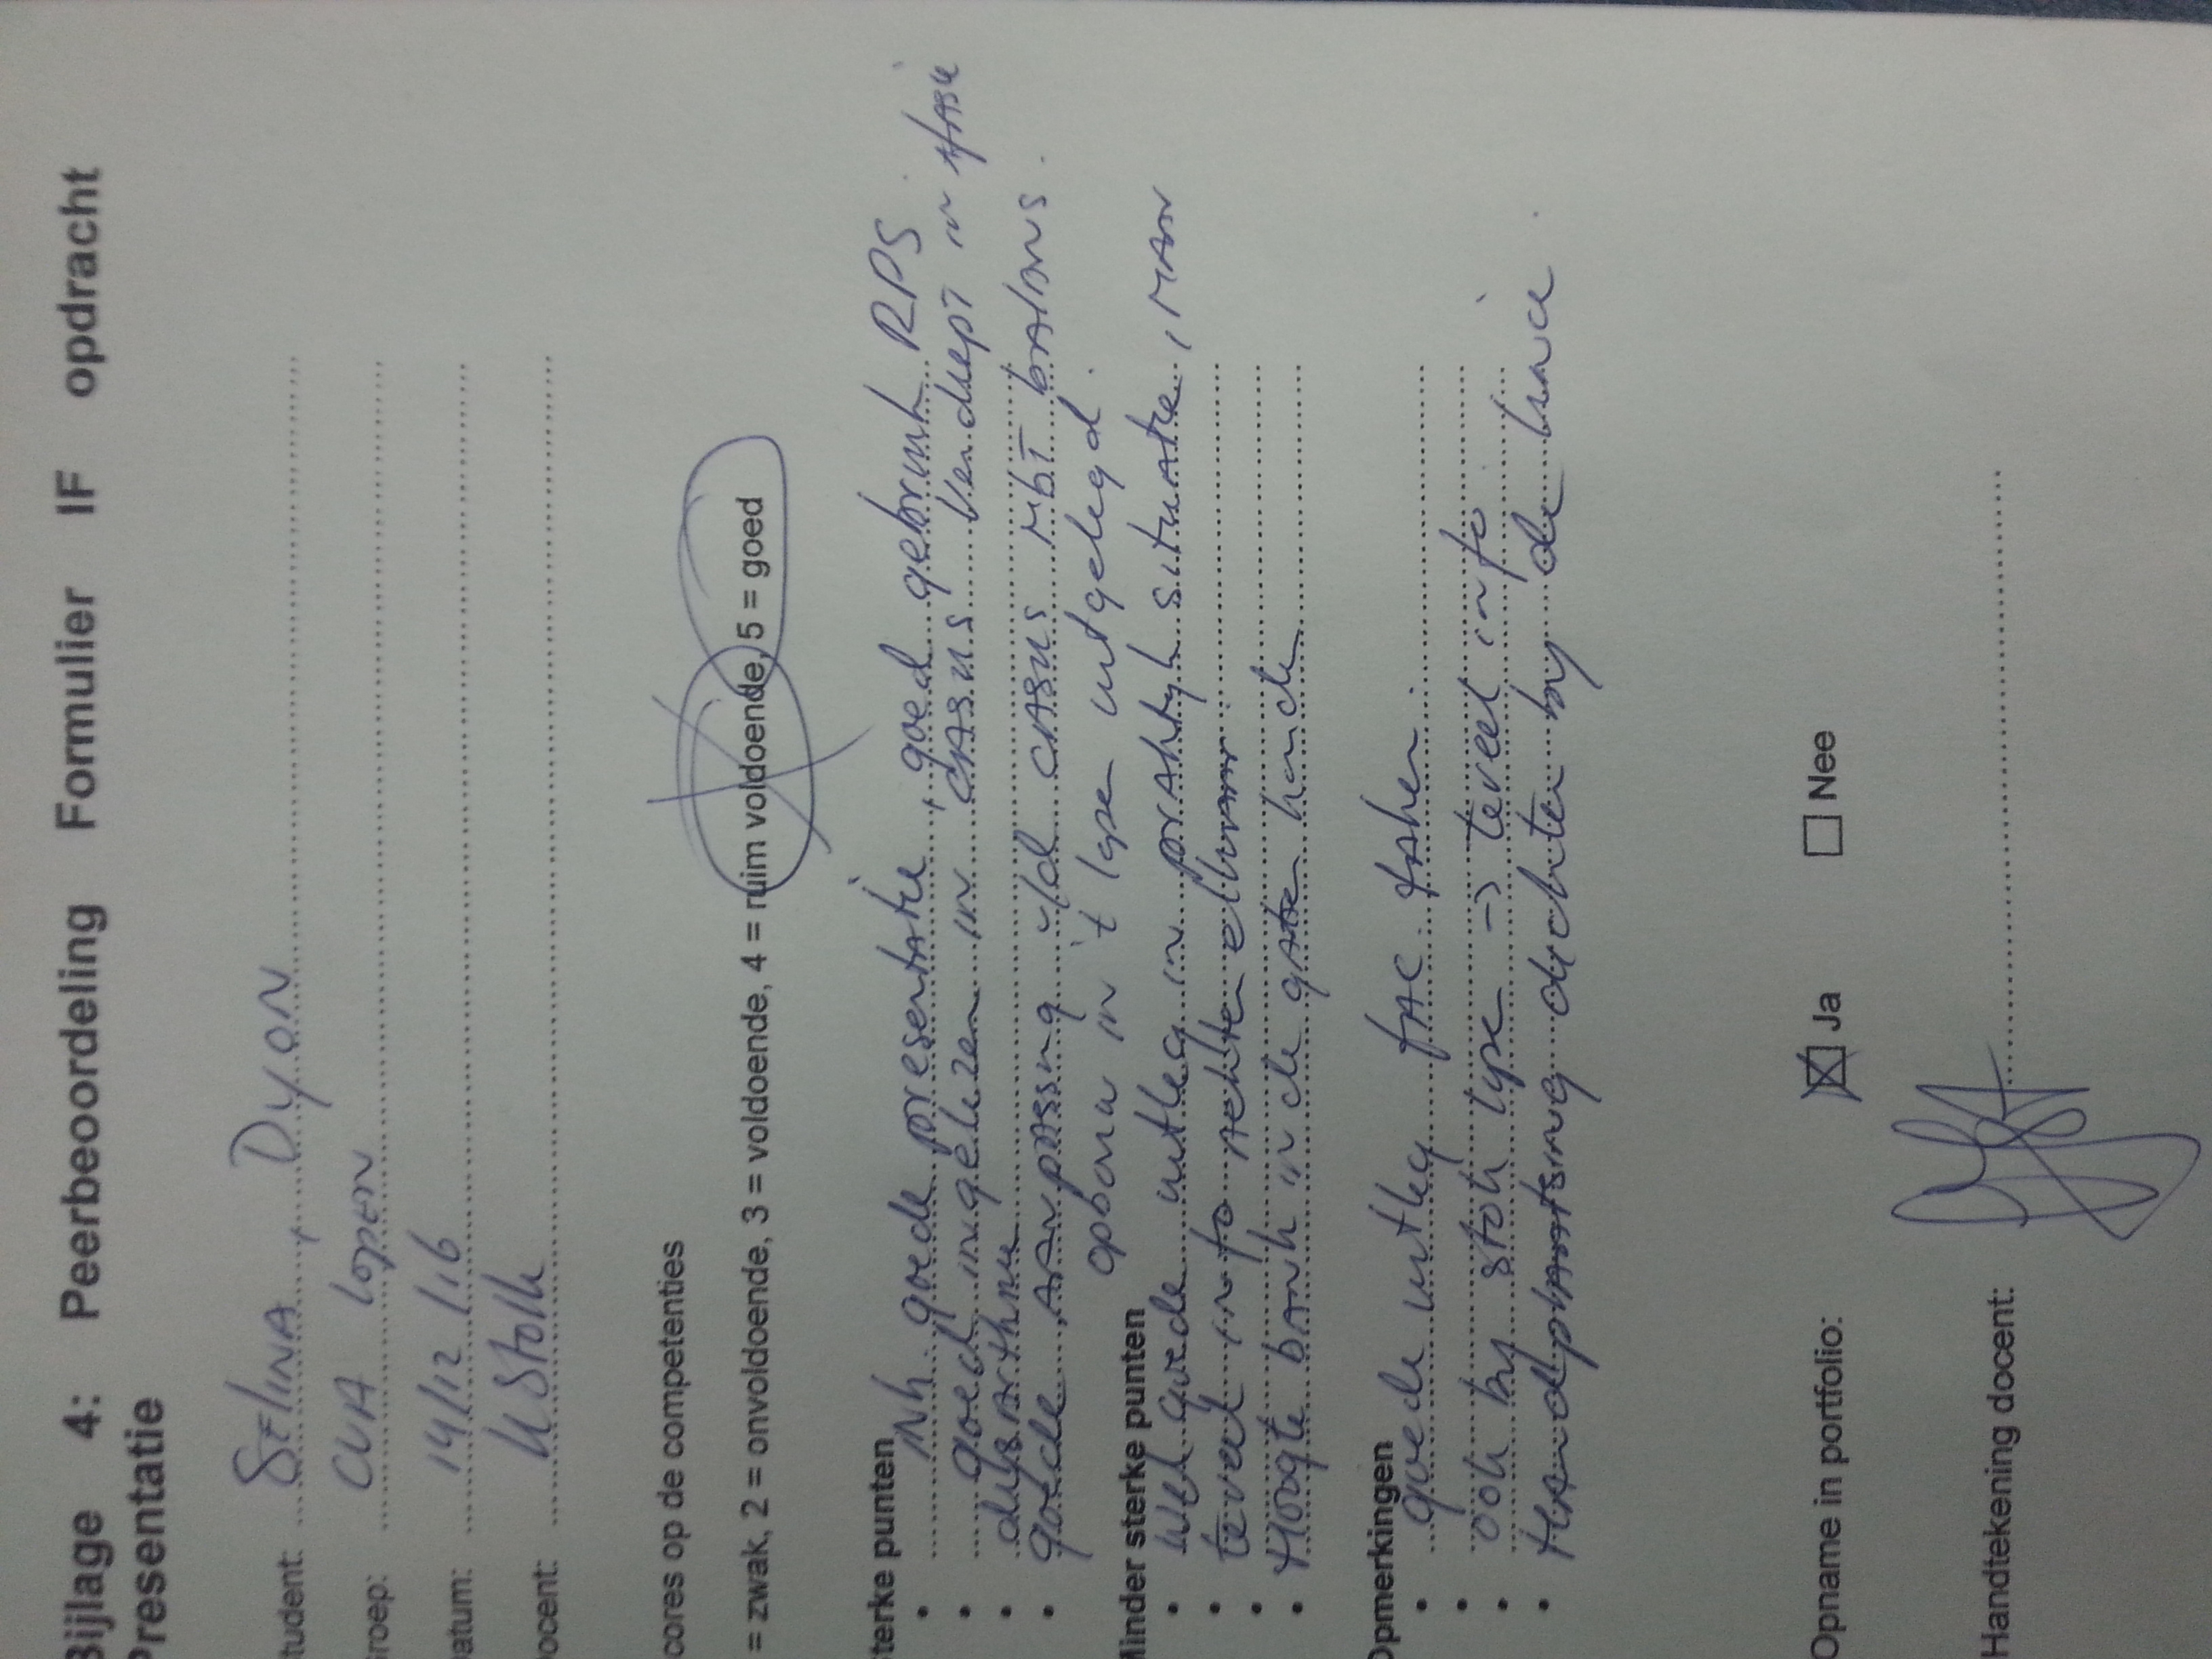 Bijlage 4: Peerbeoordeling Formulier IF opdracht
Presentatie
tudent: Selina, Dyon
roep: CVA lopen
atum: 14/12/16
ocent: M Stolk
cores op de competenties
= zwak, 2 = onvoldoende, 3 = voldoende, 4 = ruim voldoende, 5 = goed
terke punten
• goede presentatie, goed gebruik RPS
• goed ingelezen in casus verdiept in
•
• goede aanpassing v/d casus mbt balans.
opbouw in 't lopen uitgelegd.
Minder sterke punten
• wel goede uitleg in praktijk situatie, maar
• teveel info achter elkaar
• Hoogte bank in de gaten houden
•
Opmerkingen
• goede uitleg FAC
• ook bij stok type -> teveel info
•
• Handplaatsing dichter bij de
Opname in portfolio: ☒ Ja ☐ Nee
Handtekening docent: